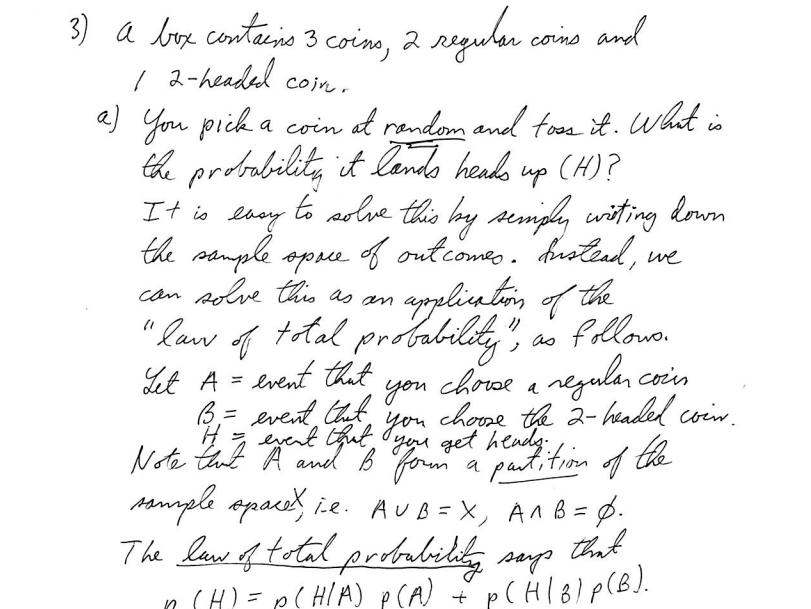 3) A box contains 3 coins, 2 regular coins and
1 2-headed coin.
a) You pick a coin at random and toss it. What is
the probability it lands heads up (H)?
It is easy to solve this by simply writing down
the sample space of outcomes. Instead, we
can solve this as an application of the
"law of total probability", as follows.
Let A = event that you choose a regular coin
B = event that you choose the 2-headed coin.
H = event that you get heads.
Note that A and B form a partition of the
sample space X, i.e. A ∪ B = X, A ∩ B = ∅.
The law of total probability says that
p(H) = p(H|A) p(A) + p(H|B) p(B).